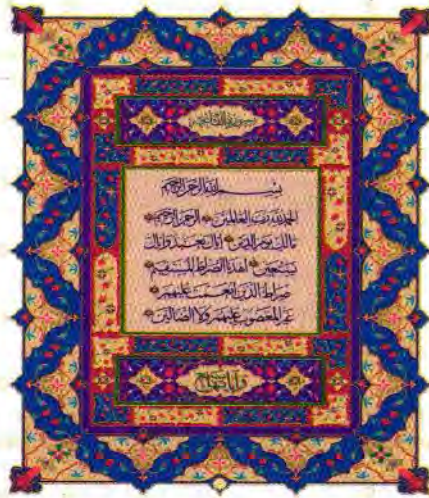 سورة الفاتحة
بسم الله الرحمن الرحيم
الحمد لله رب العالمين الرحمن الرحيم
مالك يوم الدين إياك نعبد وإياك
نستعين اهدنا الصراط المستقيم
صراط الذين أنعمت عليهم
غير المغضوب عليهم ولا الضالين